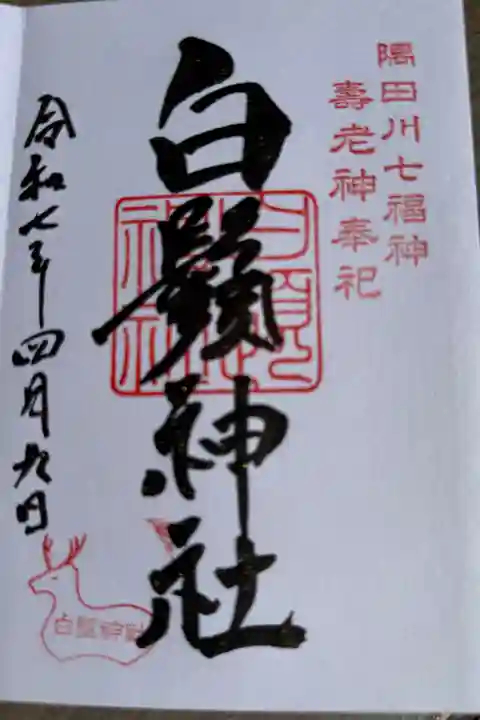 隅田川七福神
壽老神奉祀
白鬚神社
白鬚神社
令和七年四月九日
白鬚神社